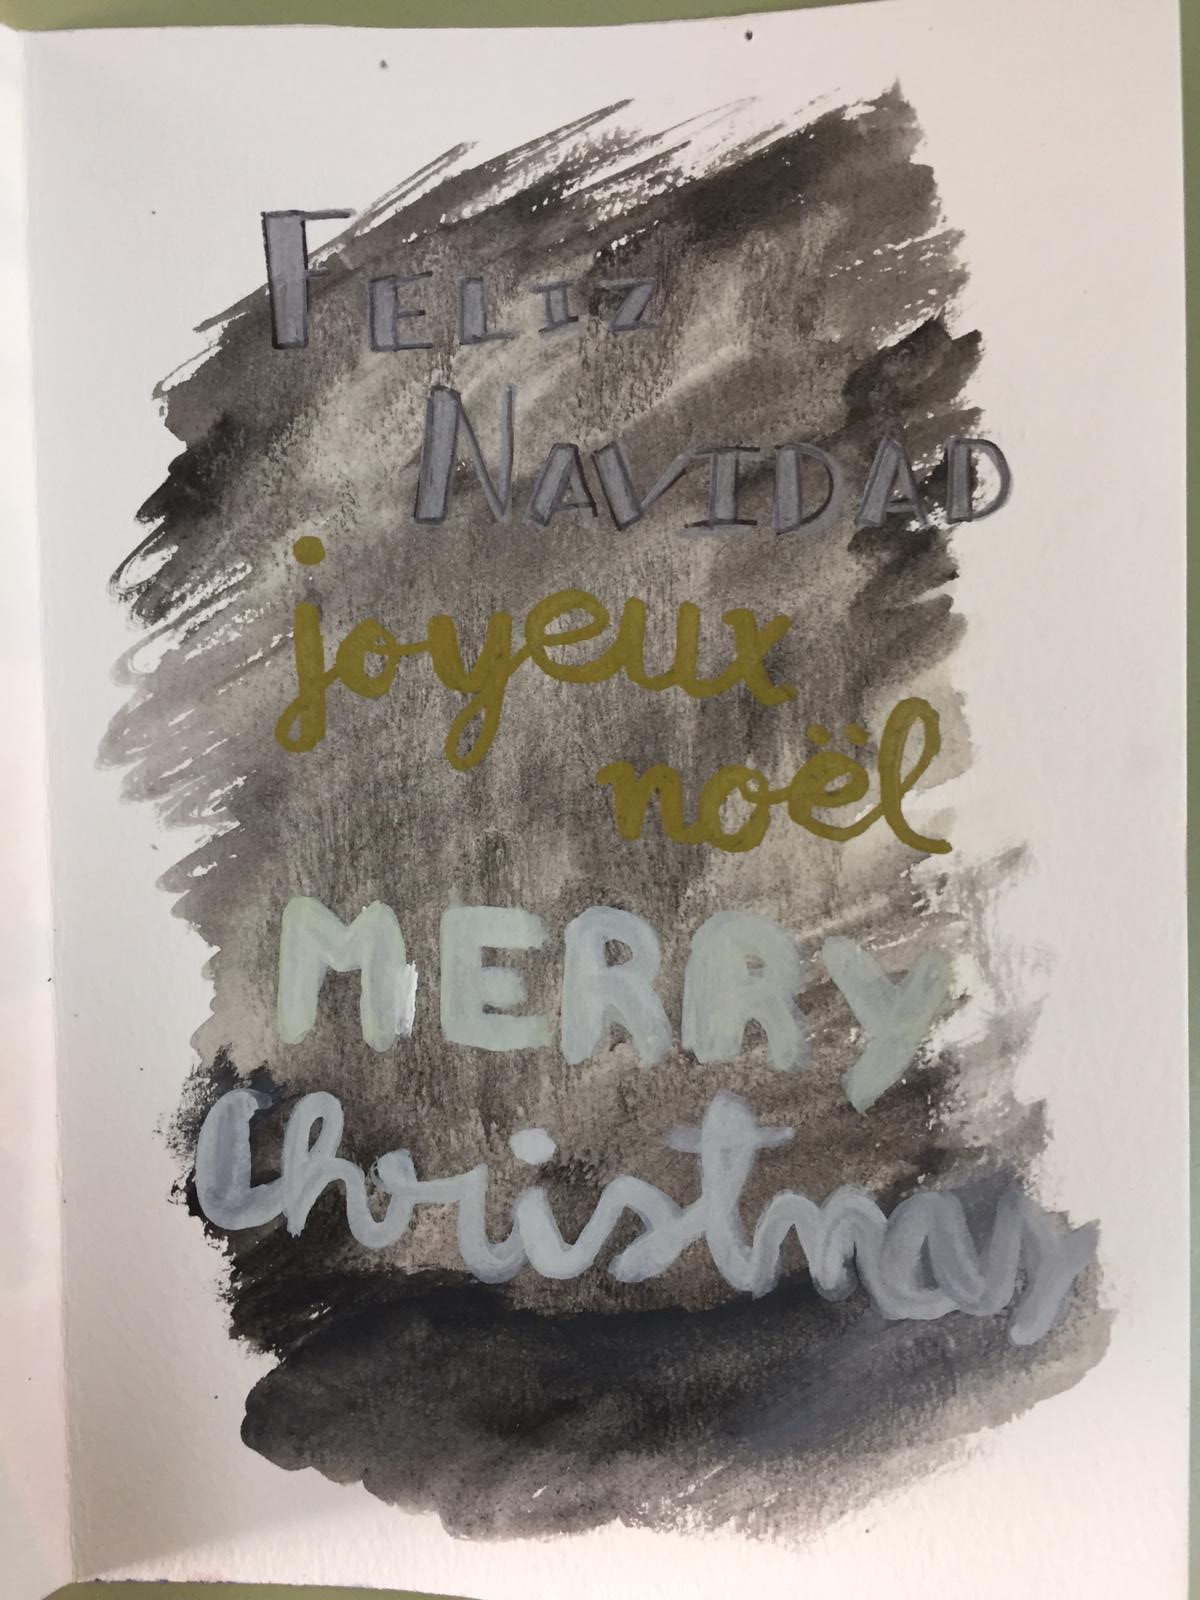 FELIZ
NAVIDAD
joyeux
noël
MERRY
Christmas